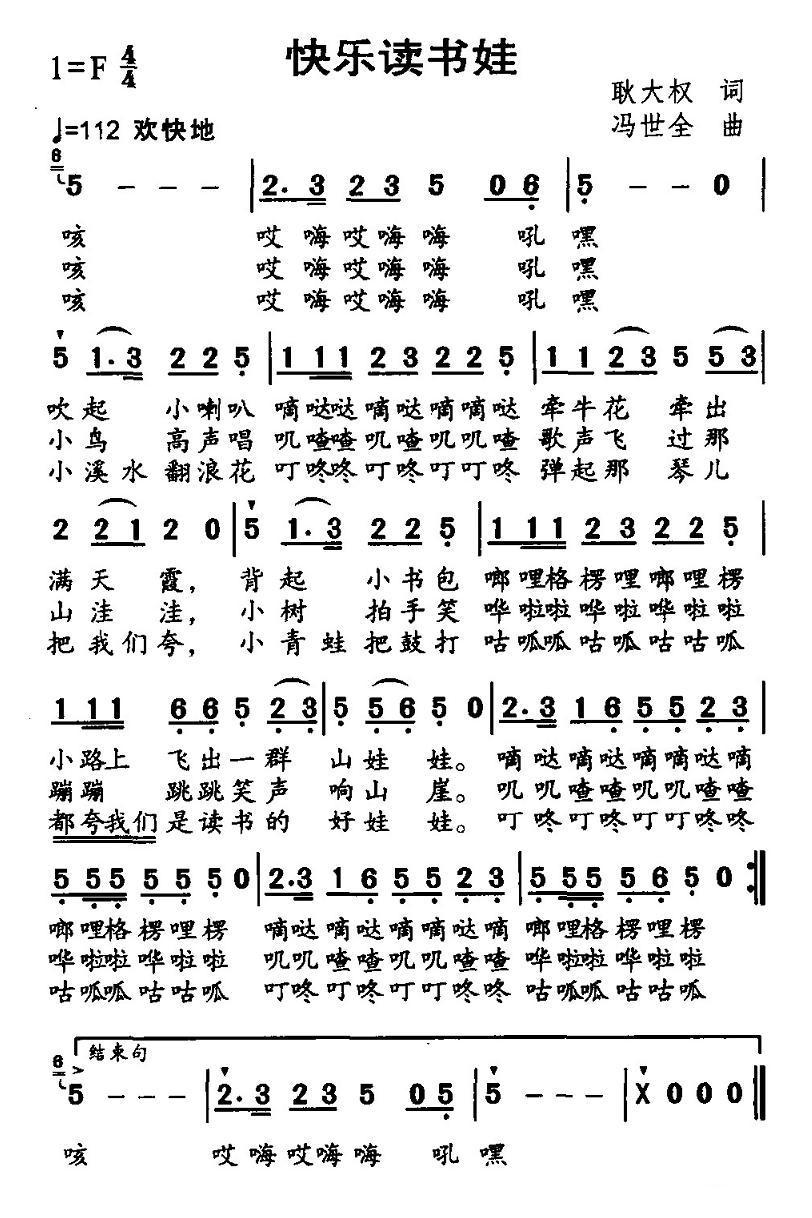 快乐读书娃
1=F 4/4
耿大权 词
♩=112 欢快地
冯世全 曲
6 5 - - - | 2. 3 2 3 5 0 6 | 5 - - 0 |
咳 哎嗨哎嗨嗨 吼嘿
咳 哎嗨哎嗨嗨 吼嘿
咳 哎嗨哎嗨嗨 吼嘿
5 1. 3 2 2 5 | 1 1 1 2 3 2 2 5 | 1 1 2 3 5 5 3 |
吹起 小喇叭 嘀哒哒嘀哒嘀嘀哒 牵牛花 牵出
小鸟 高声唱 叽喳喳叽喳叽叽喳 歌声飞 过那
小溪水翻浪花 叮咚咚叮咚叮叮咚 弹起那 琴儿
2 2 1 2 0 | 5 1. 3 2 2 5 | 1 1 1 2 3 2 2 5 |
满天霞，背起 小书包 啷哩格楞哩啷哩楞
山洼洼，小树 拍手笑 哗啦啦哗啦哗啦啦
把我们夸，小青蛙把鼓打 咕呱呱咕呱咕咕呱
1 1 1 6 6 5 2 3 | 5 5 6 5 0 | 2. 3 1 6 5 5 2 3 |
小路上 飞出一群 山娃娃。 嘀哒嘀哒嘀嘀哒嘀
蹦蹦 跳跳笑声 响山崖。 叽叽喳喳叽叽喳喳
都夸我们是读书的 好娃娃。 叮咚叮咚叮叮咚咚
5 5 5 5 5 5 0 | 2. 3 1 6 5 5 2 3 | 5 5 5 5 5 5 0 :||
啷哩格楞哩楞 嘀哒嘀嘀哒嘀嘀 啷哩格楞哩楞
哗啦啦哗啦啦 叽叽喳喳叽叽喳喳 哗啦啦哗啦啦
咕呱呱咕咕呱 叮咚叮咚叮叮咚咚 咕呱呱咕咕呱
结束句
6 5 - - - | 2. 3 2 3 5 0 5 | 5 - - - | X 0 0 0 ||
咳 哎嗨哎嗨嗨 吼嘿